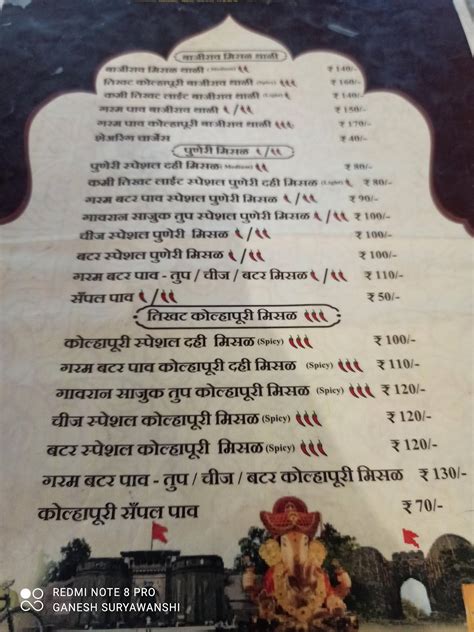 बाजीराव मिसळ थाळी
बाजीराव मिसळ थाळी (Medium) ₹ 140/-
तिखट कोल्हापूरी बाजीराव थाळी (Spicy) ₹ 160/-
कमी तिखट लाईट बाजीराव थाळी ₹ 140/-
गरम पाव बाजीराव थाळी / ₹ 150/-
गरम पाव कोल्हापूरी बाजीराव थाळी ₹ 170/-
शेअरिंग चार्जेस ₹ 40/-
पुणेरी मिसळ /
पुणेरी स्पेशल दही मिसळ (Medium) ₹ 80/-
कमी तिखट लाईट स्पेशल पुणेरी दही मिसळ (Light) ₹ 80/-
गरम बटर पाव स्पेशल पुणेरी मिसळ / ₹ 90/-
गावरान साजुक तुप स्पेशल पुणेरी मिसळ / ₹ 100/-
चीज स्पेशल पुणेरी मिसळ / ₹ 100/-
बटर स्पेशल पुणेरी मिसळ / ₹ 100/-
गरम बटर पाव - तुप / चीज / बटर मिसळ / ₹ 110/-
सॅंपल पाव / ₹ 50/-
तिखट कोल्हापूरी मिसळ
कोल्हापूरी स्पेशल दही मिसळ (Spicy) ₹ 100/-
गरम बटर पाव कोल्हापूरी दही मिसळ (Spicy) ₹ 110/-
गावरान साजुक तुप कोल्हापूरी मिसळ (Spicy) ₹ 120/-
चीज स्पेशल कोल्हापूरी मिसळ (Spicy) ₹ 120/-
बटर स्पेशल कोल्हापूरी मिसळ (Spicy) ₹ 120/-
गरम बटर पाव - तुप / चीज / बटर कोल्हापूरी मिसळ ₹ 130/-
कोल्हापूरी सॅंपल पाव ₹ 70/-
REDMI NOTE 8 PRO
GANESH SURYAWANSHI